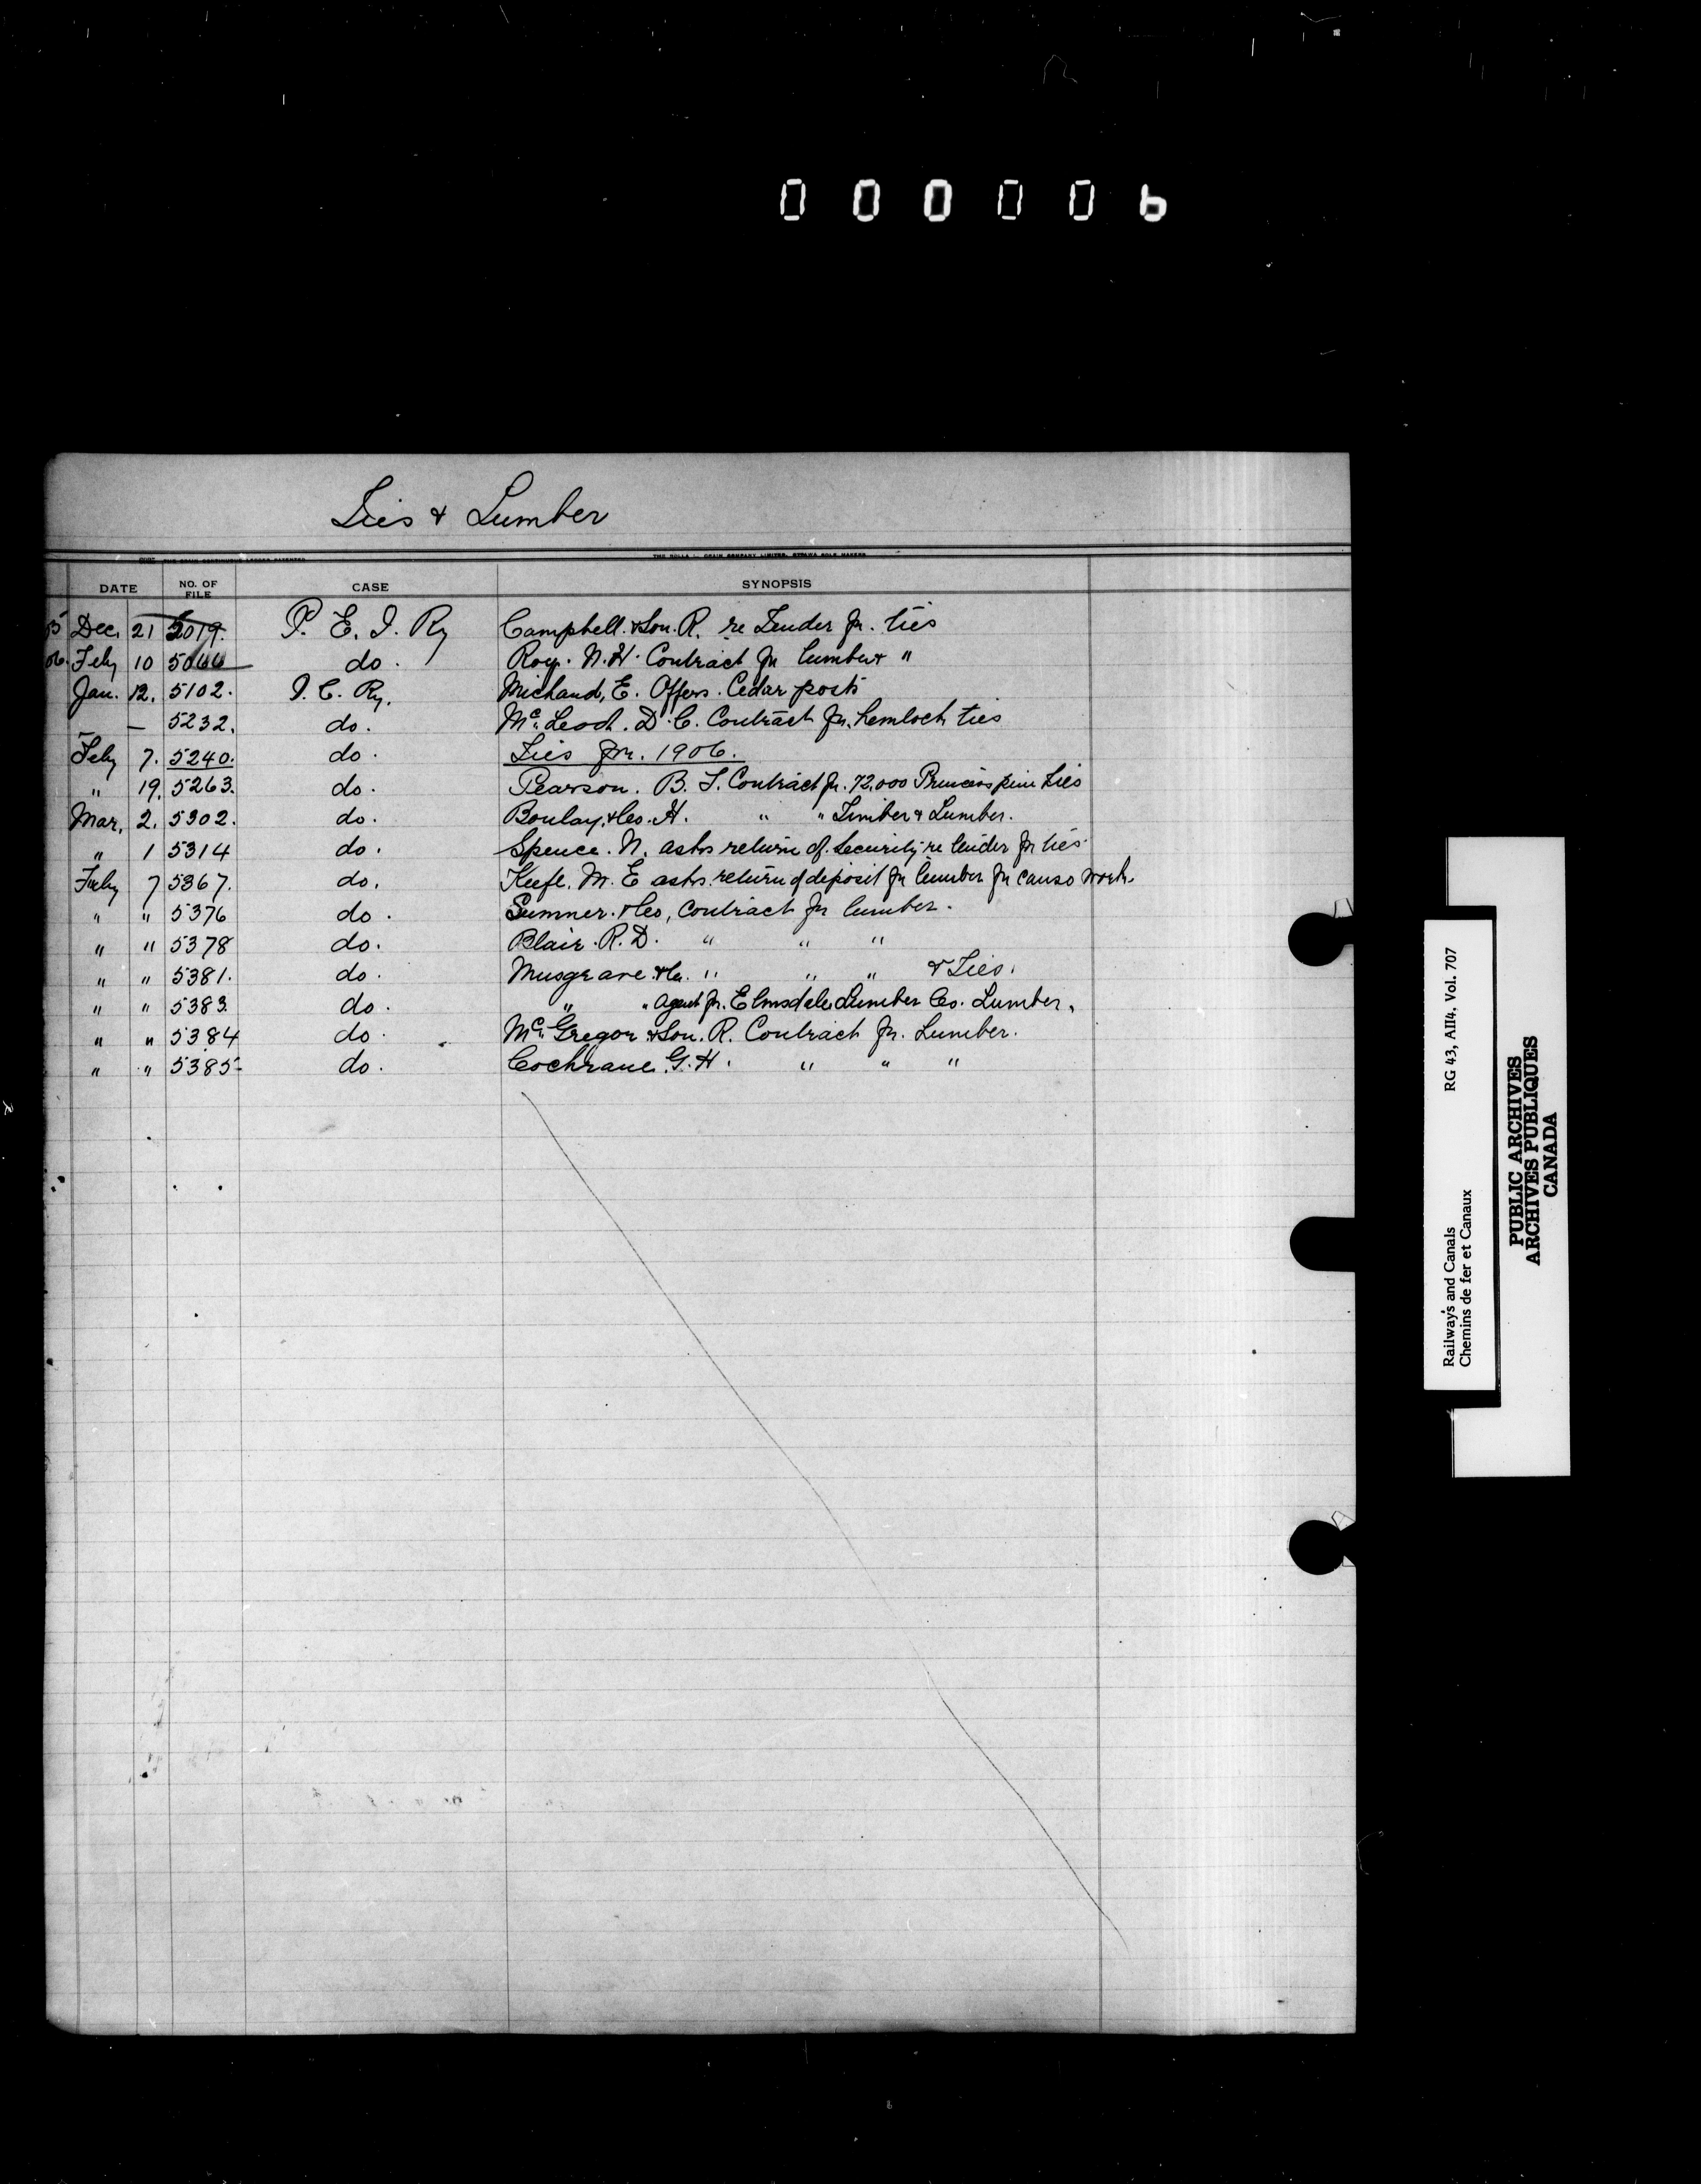 000006
Ties & Lumber
DATE NO. OF FILE CASE SYNOPSIS
5 Dec. 21 5019. P. E. I. Ry Campbell. & Son. R. re Tender fr. ties
06. Feby 10 do. Roy. N. H. Contract fr lumber & "
Jan. 12. 5102. I. C. Ry. Michaud, E. Offers. Cedar posts
— 5232. do. Mc. Leod. D. C. Contract fr. hemlock ties
Feby 7. 5240. do. Ties for. 1906.
" 19. 5263. do. Pearson. B. F. Contract fr. 72,000 Princess pine ties
Mar. 2. 5302. do. Boulay, & Co. H. " " Timber & Lumber.
" 1 5314 do. Spence. N. asks return of. Security re tender fr ties
Feby 7 5367. do. Keefe. M. E asks. return of deposit fr lumber fr Canso work.
" " 5376 do. Sumner. & Co, Contract fr lumber.
" " 5378 do. Blair. R. D. " " "
" " 5381. do. Musgrave. & Co. " " " & Ties.
" " 5383. do. " " agent fr. Elmsdale Lumber Co. Lumber.
" " 5384 do. Mc. Gregor & Son. R. Contract fr. Lumber.
" " 5385 do. Cochrane. G. H. " " "
Railways and Canals RG 43, AII4, Vol. 707
Chemins de fer et Canaux
PUBLIC ARCHIVES
ARCHIVES PUBLIQUES
CANADA